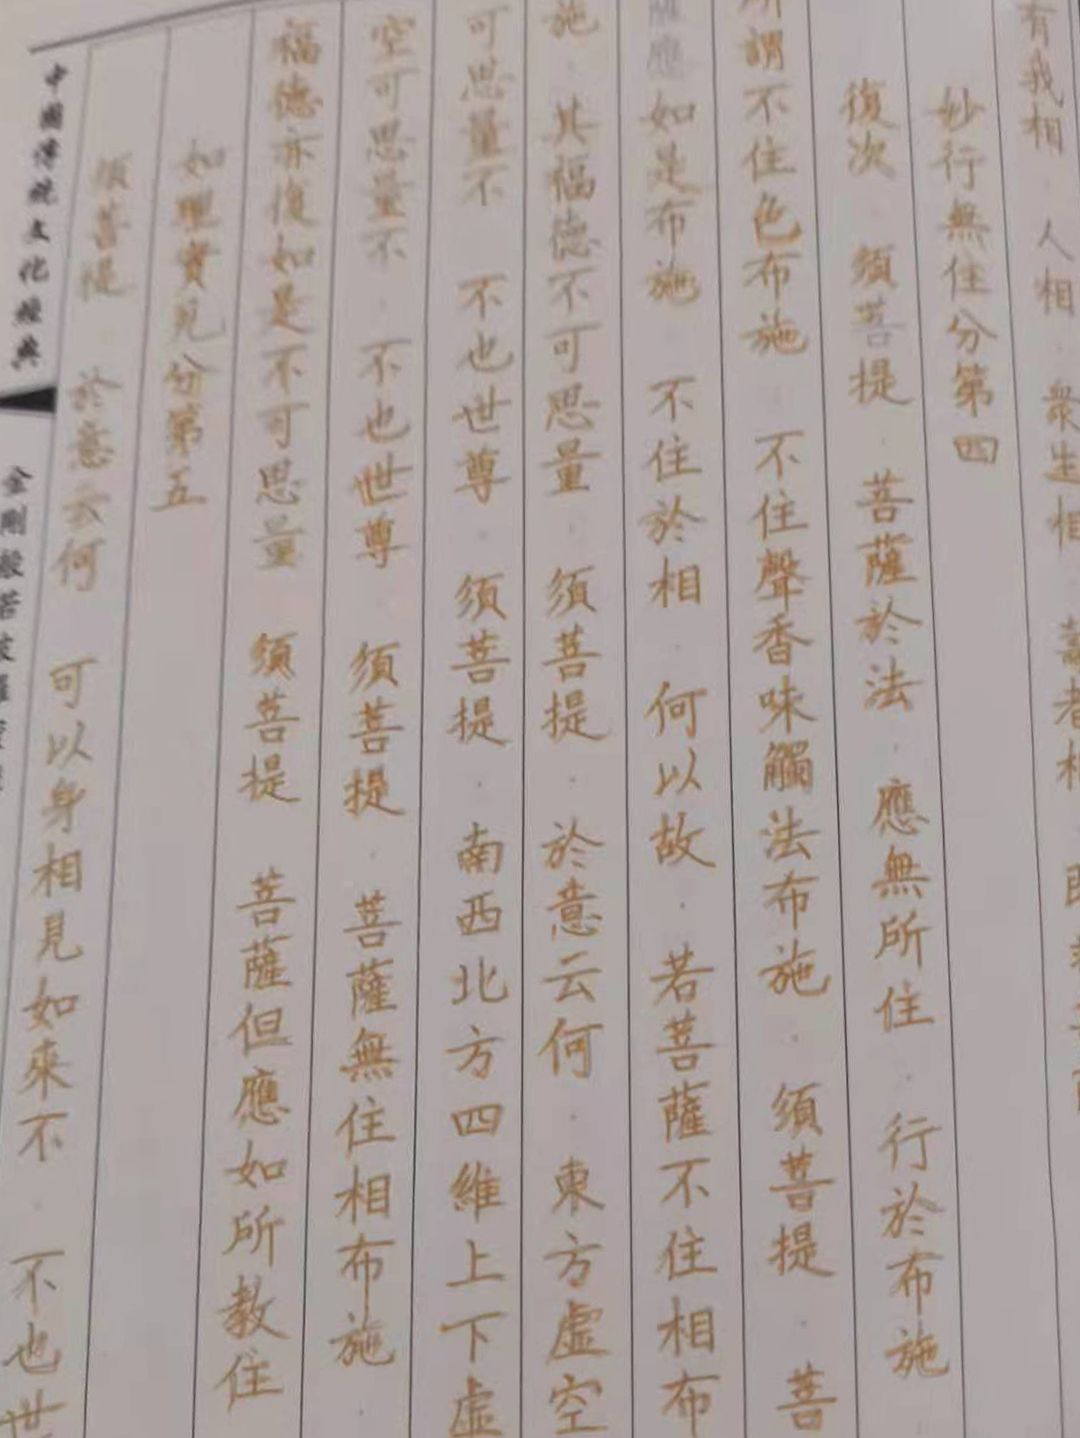 有我相 人相 衆生相 壽者相
妙行無住分第四
復次 須菩提 菩薩於法 應無所住 行於布施
所謂不住色布施 不住聲香味觸法布施 須菩提 菩
薩應如是布施 不住於相 何以故 若菩薩不住相布
施 其福德不可思量 須菩提 於意云何 東方虛空
可思量不 不也世尊 須菩提 南西北方四維上下虛
空可思量不 不也世尊 須菩提 菩薩無住相布施
福德亦復如是不可思量 須菩提 菩薩但應如所教住
如理實見分第五
須菩提 於意云何 可以身相見如來不 不也世
中國傳統文化經典
金剛般若波羅